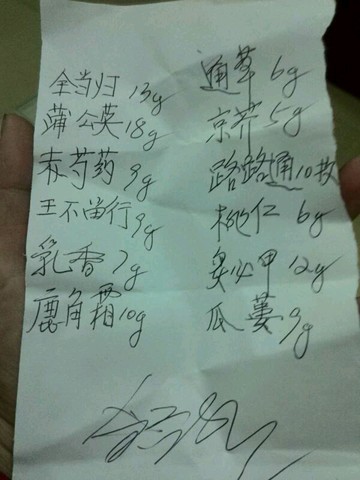 全当归 13g
蒲公英 18g
赤芍药 9g
王不留行 9g
乳香 7g
鹿角霜 10g
通草 6g
京芥 5g
路路通 10枚
桃仁 6g
炙山甲 12g
瓜蒌 9g